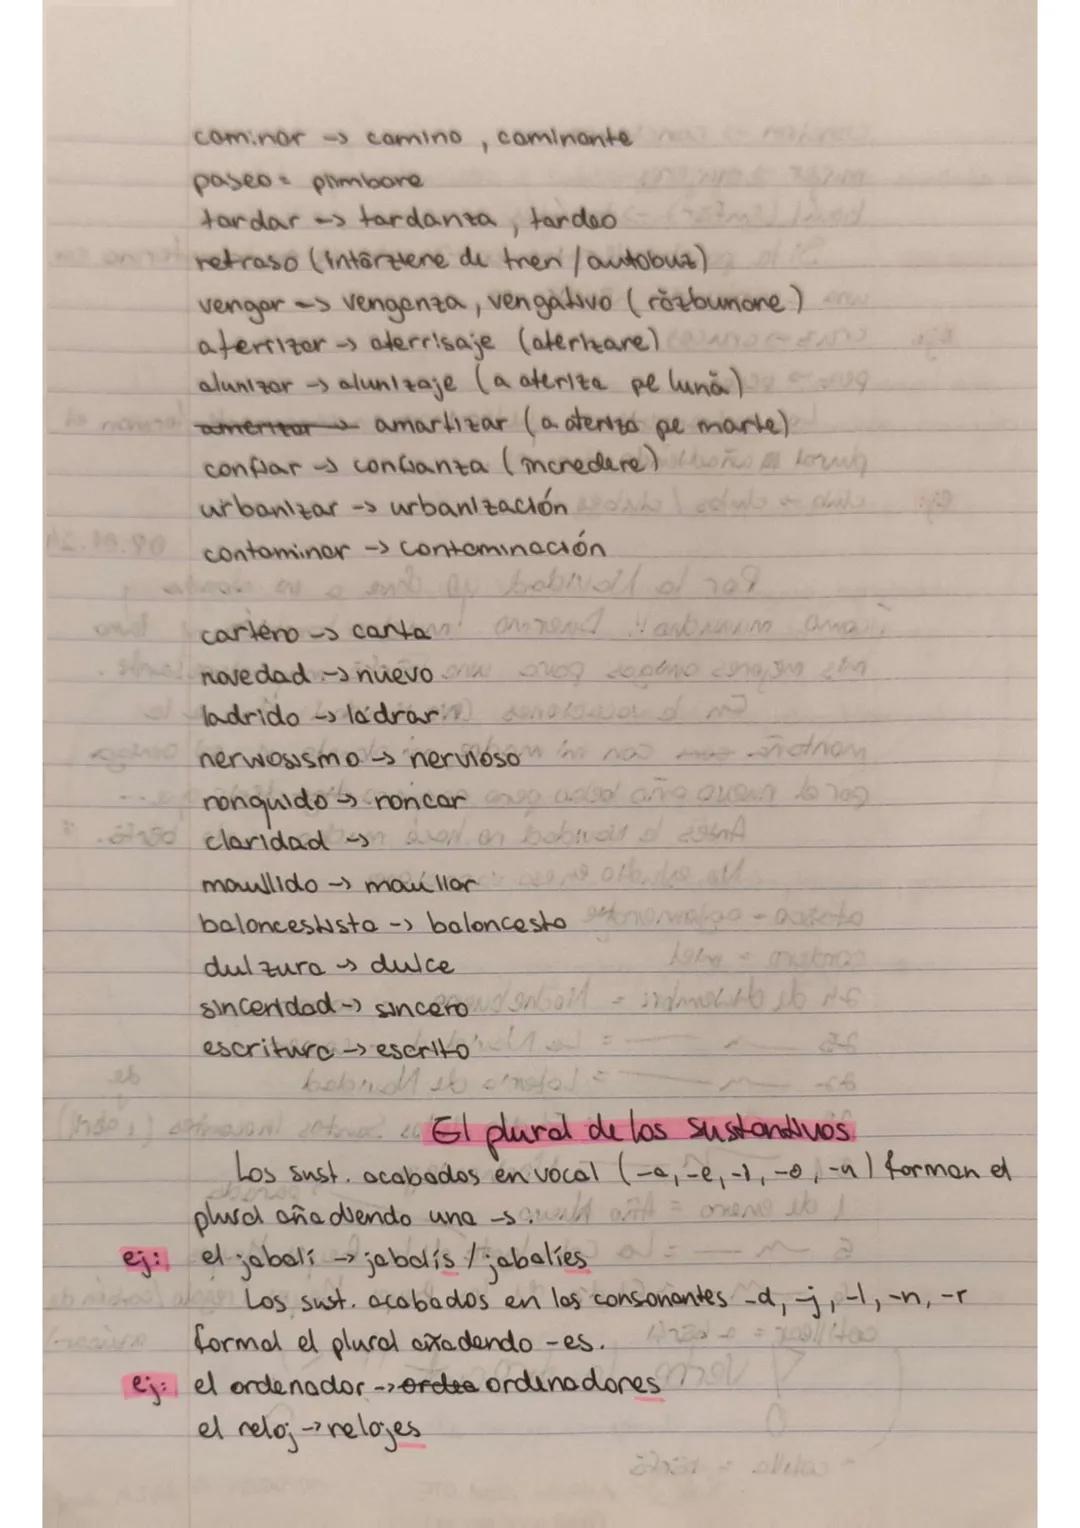 caminar -> camino, caminante
paseo = plimbare
tardar -> tardanza, tardeo
retraso (întârziere de tren/autobuz)
vengar -> venganza, vengativo (răzbunare)
aterrizar -> aterrisaje (aterizare)
alunizar -> alunizaje (a ateriza pe lună)
amerizar -> amartizar (a ateriza pe marte)
confiar -> confianza (incredere)
urbanizar -> urbanización
contaminar -> contaminación
cartero -> carta
novedad -> nuevo
ladrido -> ladrar
nerwosismo -> nervioso
ronquido -> roncar
claridad ->
maullido -> maullar
baloncestista -> baloncesto
dulzura -> dulce
sinceridad -> sincero
escritura -> escrito
El plural de los sustantivos
Los sust. acabados en vocal (-a, -e, -i, -o, -u) forman el
plural añadiendo una -s.
ej: el jabalí -> jabalís / jabalíes
Los sust. acabados en las consonantes -d, -j, -l, -n, -r
formal el plural añadendo -es.
ej: el ordenador -> ordea ordenadores
el reloj -> relojes